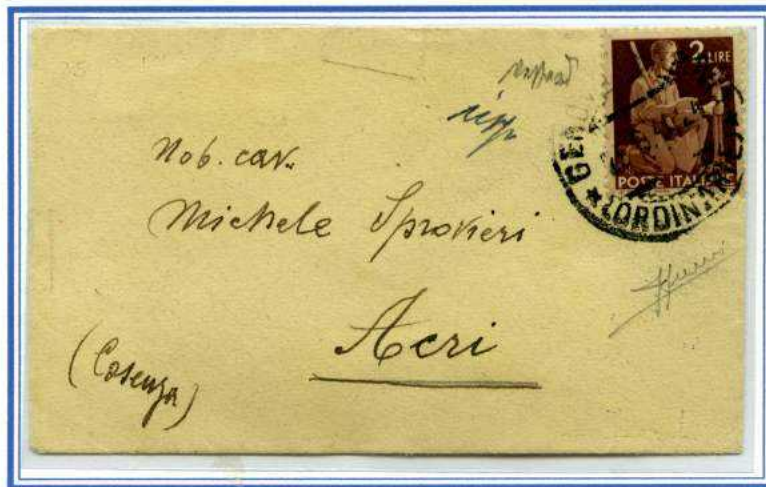 2 LIRE
POSTE ITALIANE
(ORDINAR
Nob. cav.
Michele Sprovieri
Acri
(Cosenza)